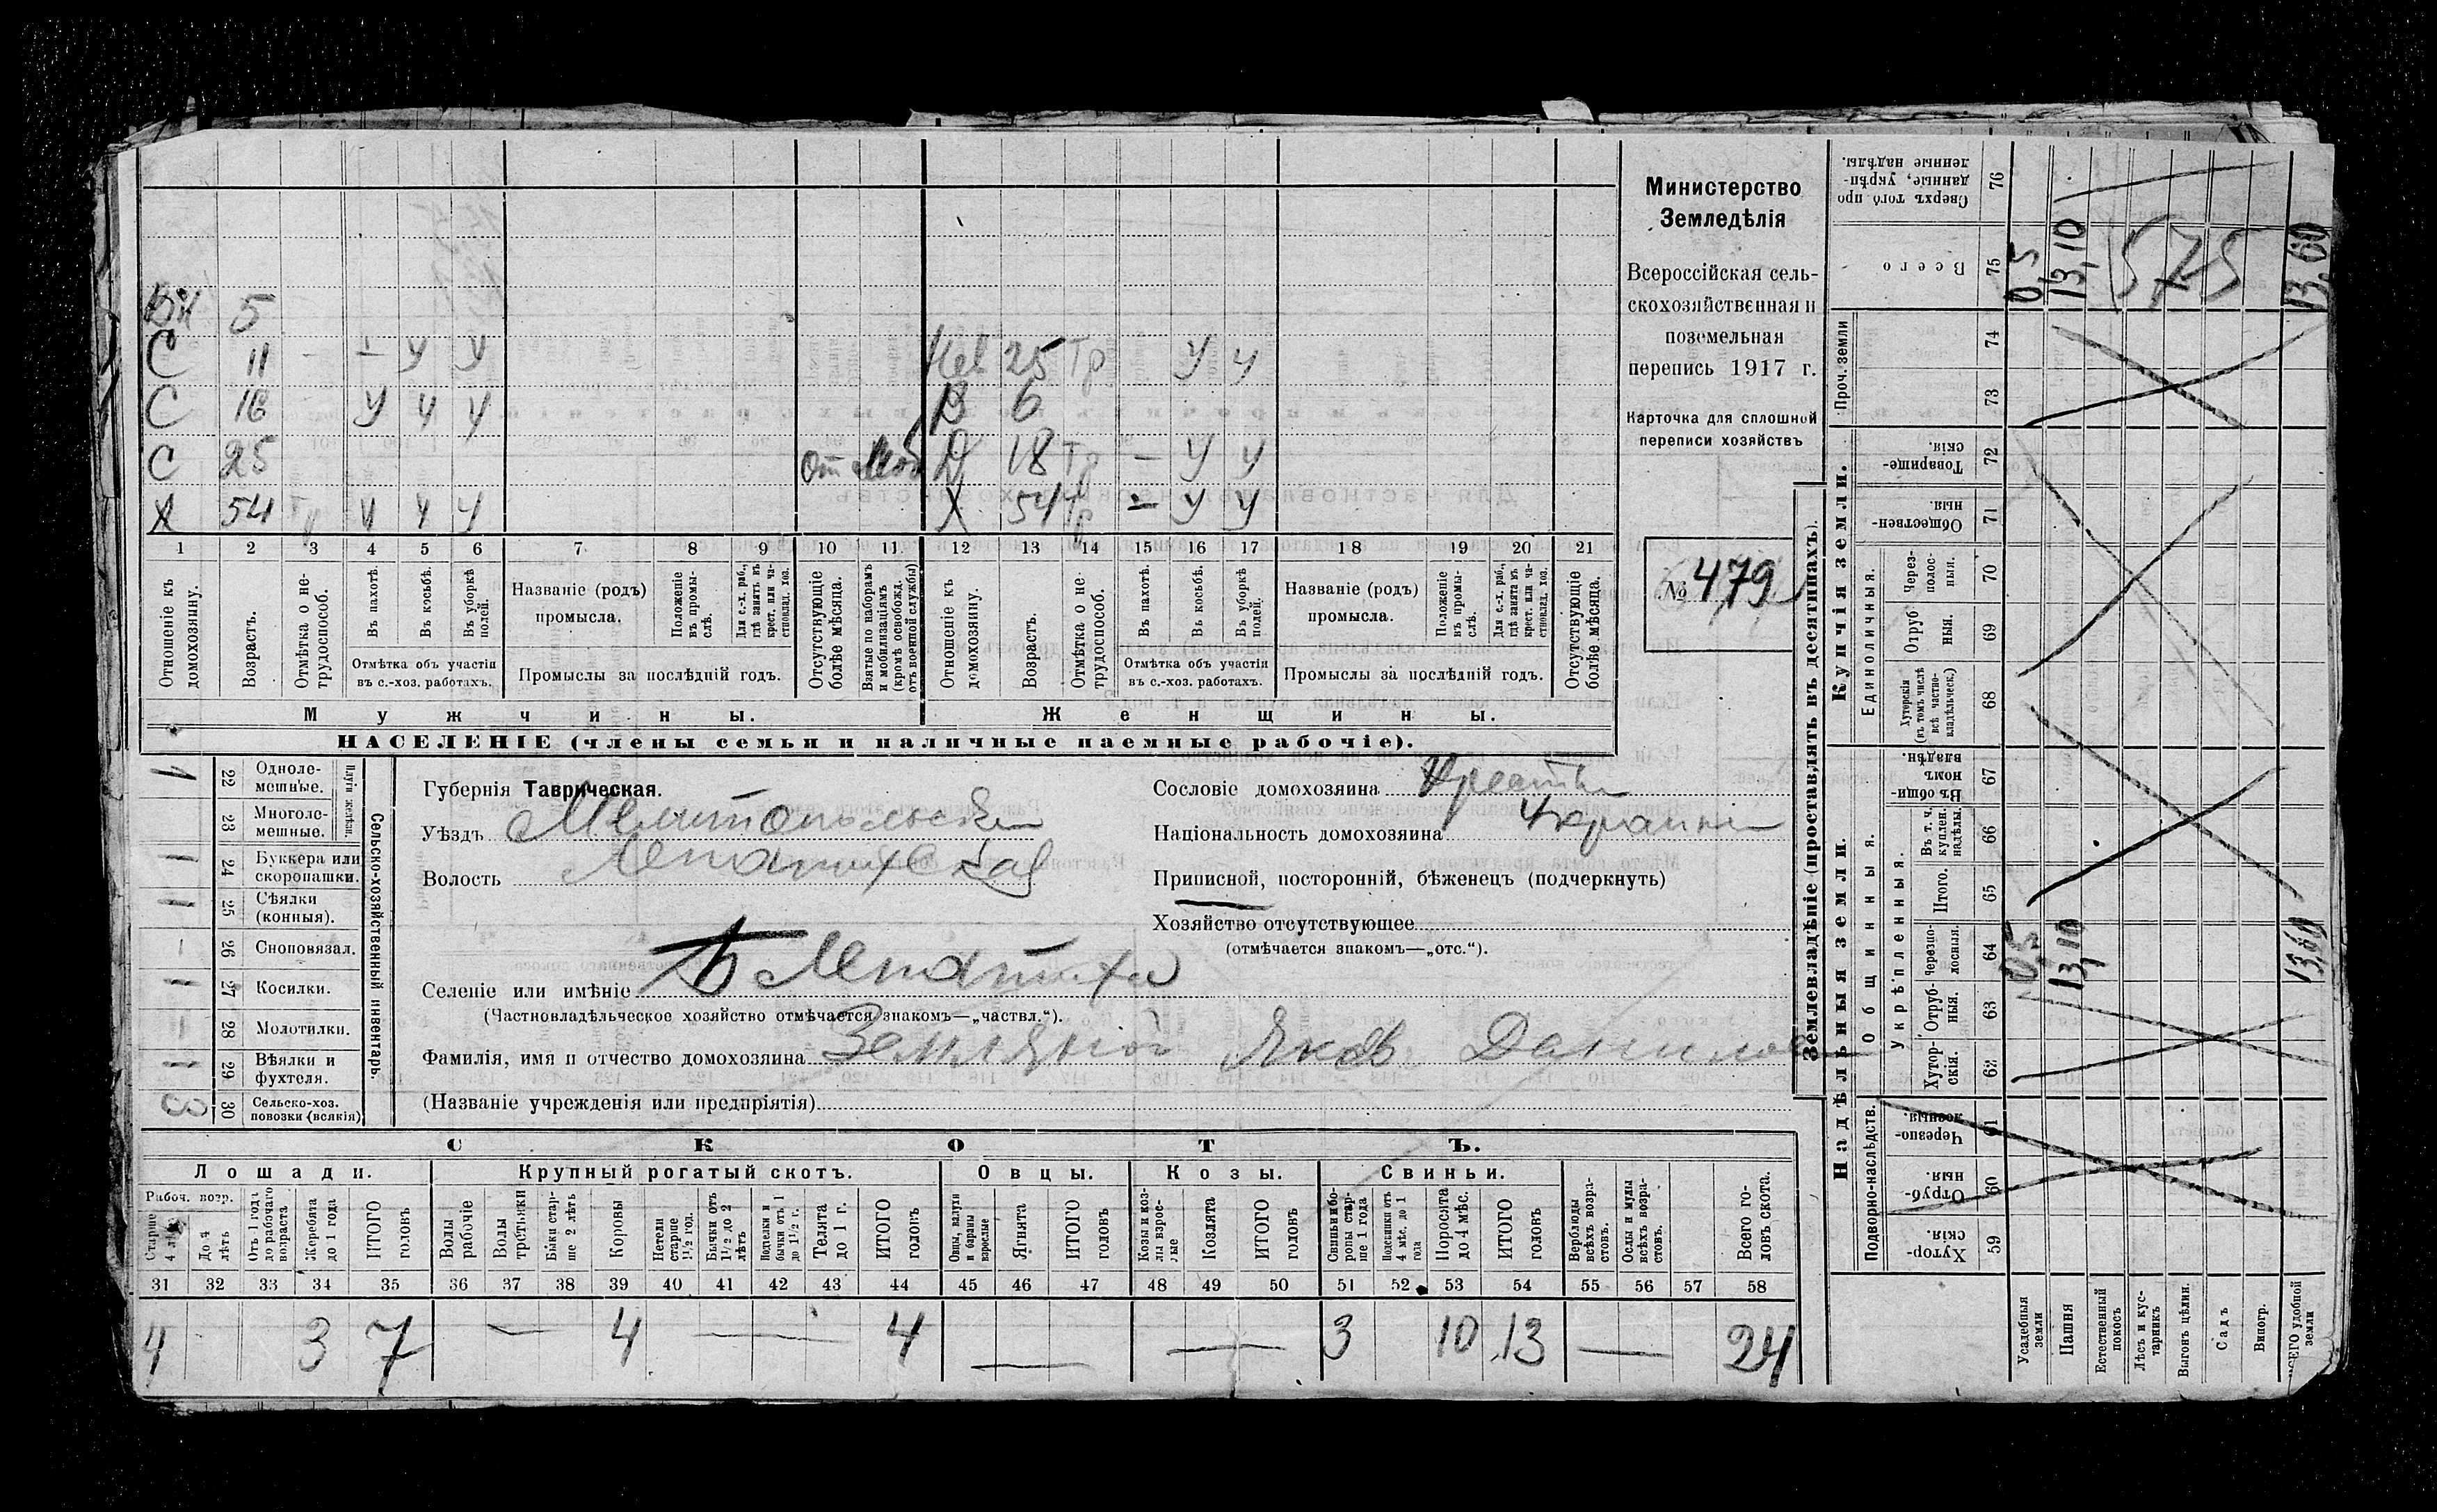 Министерство
Земледѣлія
Всероссійская сель-
скохозяйственная и
поземельная
перепись 1917 г.
Карточка для сплошной
переписи хозяйствъ
№ 479
Вн 5
С 11 — — У У
С 16 У У У
С 25 от моб
Х 54 Тр У У У
Нев 25 Тр — У У
В 6
Д 18 Тр — У У
Х 54 Тр — У У
1 2 3 4 5 6 7 8 9 10 11 12 13 14 15 16 17 18 19 20 21
Отношеніе къ домохозяину.
Возрастъ.
Отмѣтка о не-трудоспособ.
Въ пахотѣ.
Въ косьбѣ.
Въ уборкѣ полей.
Отмѣтка объ участіи
въ с.-хоз. работахъ.
Названіе (родъ)
промысла.
Положеніе въ промы-слѣ.
Для с.-х. раб., гдѣ занятъ въ крест. или ча-стновлад. хоз.
Промыслы за послѣдній годъ.
Отсутствующіе болѣе мѣсяца.
Взятые по наборамъ и мобилизаціямъ (кромѣ освобожд. отъ военной службы)
Отношеніе къ домохозяину.
Возрастъ.
Отмѣтка о не-трудоспособ.
Въ пахотѣ.
Въ косьбѣ.
Въ уборкѣ полей.
Отмѣтка объ участіи
въ с.-хоз. работахъ.
Названіе (родъ)
промысла.
Положеніе въ промы-слѣ.
Для с.-х. раб., гдѣ занята въ крест. или ча-стновлад. хоз.
Промыслы за послѣдній годъ.
Отсутствующіе болѣе мѣсяца.
Мужчины.
Женщины.
НАСЕЛЕНІЕ (члены семьи и наличные наемные рабочіе).
Сельско-хозяйственный инвентарь.
Плуги желѣзн.
22 Одноле-мешные. 1
23 Многоле-мешные.
24 Буккера или скоропашки. 1
25 Сѣялки (конныя). 1
26 Сноповязал. –
27 Косилки. 1
28 Молотилки. –
29 Вѣялки и фухтеля. 1
30 Сельско-хоз. повозки (всякія)
Губернія Таврическая.
Уѣздъ Мелитопольскій
Волость Лепатихская
Селеніе или имѣніе Б Лепатиха
(Частновладѣльческое хозяйство отмѣчается знакомъ—„частвл.“).
Фамилія, имя и отчество домохозяина Земляной Яковъ Данилов
(Названіе учрежденія или предпріятія)
Сословіе домохозяина Крестьян
Національность домохозяина Украин
Приписной, посторонній, бѣженецъ (подчеркнуть)
Хозяйство отсутствующее
(отмѣчается знакомъ—„отс.“).
СКОТЪ.
Лошади.
Крупный рогатый скотъ.
Овцы.
Козы.
Свиньи.
Рабоч. возр.
Старше 4 лѣтъ
До 4 лѣтъ
Отъ 1 года до рабочаго возраста
Жеребята до 1 года
ИТОГО головъ
Волы рабочіе
Волы третьяки
Быки стар-ше 2 лѣтъ
Коровы
Нетели старше 1½ год.
Бычки отъ 1½ до 2 лѣтъ
Подтелки и бычки отъ 1 до 1½ г.
Телята до 1 г.
ИТОГО головъ
Овцы, валухи и бараны взрослые
Ягнята
ИТОГО головъ
Козы и коз-лы взрос-лые
Козлята
ИТОГО головъ
Свиньи и бо-ровы стар-ше 1 года
Подсвинки отъ 4 мѣс. до 1 года
Поросята до 4 мѣс.
ИТОГО головъ
Верблюды всѣхъ возра-стовъ.
Ослы и мулы всѣхъ возра-стовъ.
Всего го-ловъ скота.
31 32 33 34 35 36 37 38 39 40 41 42 43 44 45 46 47 48 49 50 51 52 53 54 55 56 57 58
4 3 7 — 4 — 4 — — 3 10 13 — 24
Землевладѣніе (проставлять въ десятинахъ).
Надѣльныя земли.
Купчія земли.
Проч. земли
Подворно-наслѣдств.
Общинныя.
Укрѣпленныя.
Единоличныя.
Сверхъ того про данные, укрѣп-ленные надѣлы. 76
Всего 75
74
73
Товарище-скія. 72
Обществен-ныя 71
Через-полос-ныя. 70
Отруб ныя. 69
Хуторскія (въ томъ числѣ всѣ частно-владѣльческ.) 68
Въ общи-номъ владѣн. 67
Въ т. ч. куплен. надѣлы. 66
Итого. 65
Черезпо-лосныя. 64
Отруб-ныя. 63
Хутор-скія. 62
Черезпо-лосныя. 61
Отруб-ныя. 60
Хутор-скія. 59
Усадебныя земли 0,5 0,5
Пашня 13,10 13,10
Естественный покосъ
Лѣсъ и кус-тарникъ
Выгонъ цѣлин.
Садъ
Виногр.
ВСЕГО удобной земли 13,60 13,60
575